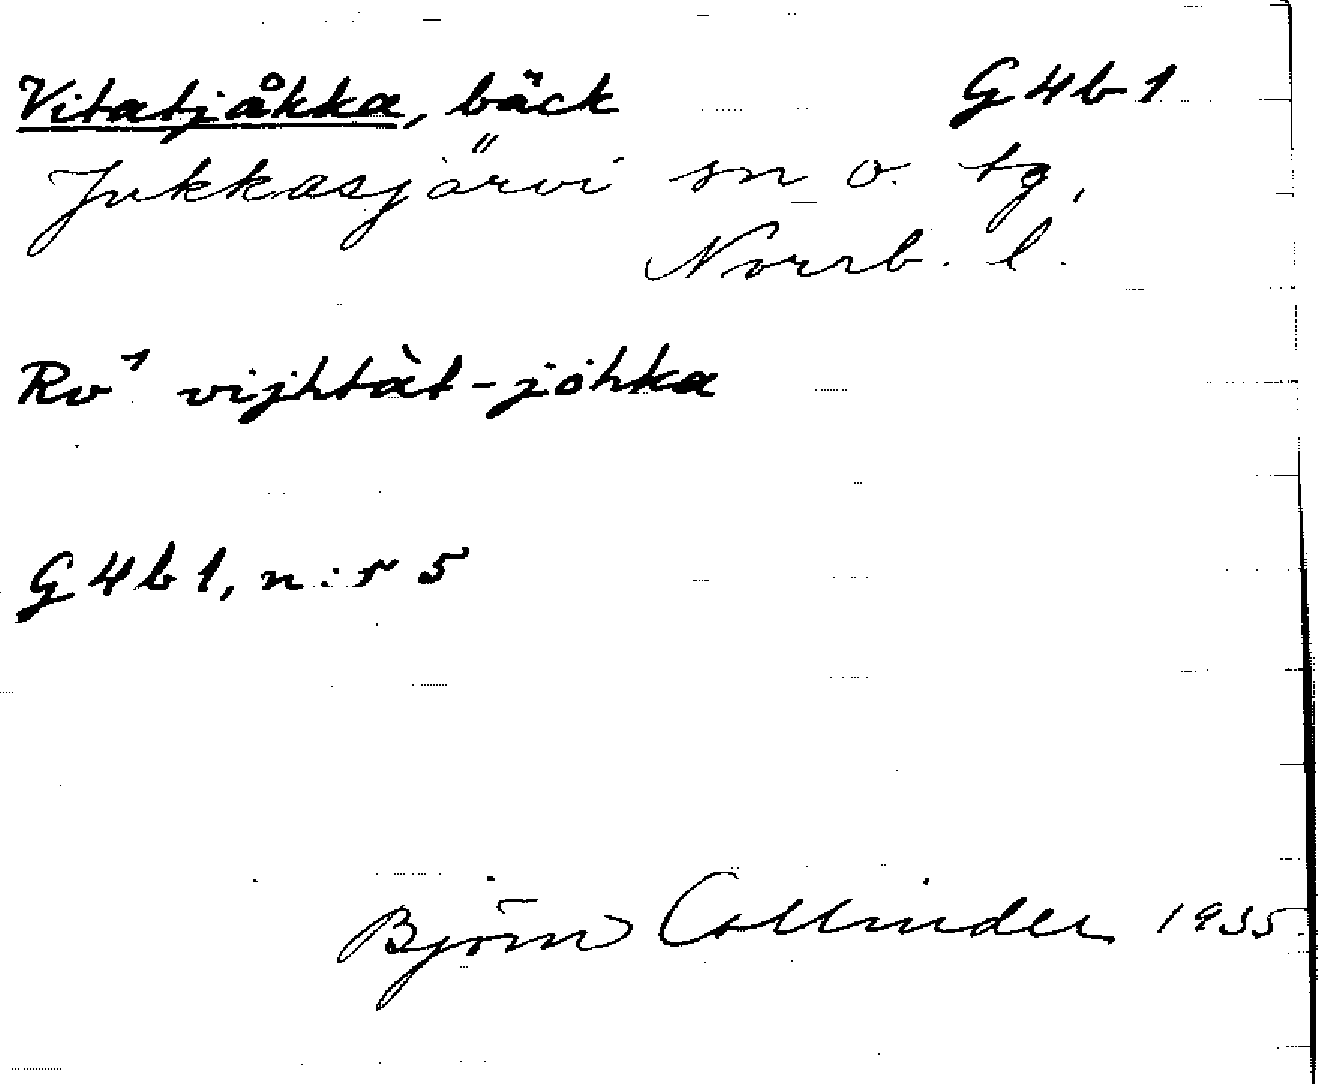 Vitatjåkka, bäck G4b1
Jukkasjärvi sn o. tg,
Norrb. l.
Rv¹ vijhtàt-jåhka
G4b1, n:r 5
Björn Collinder 1935